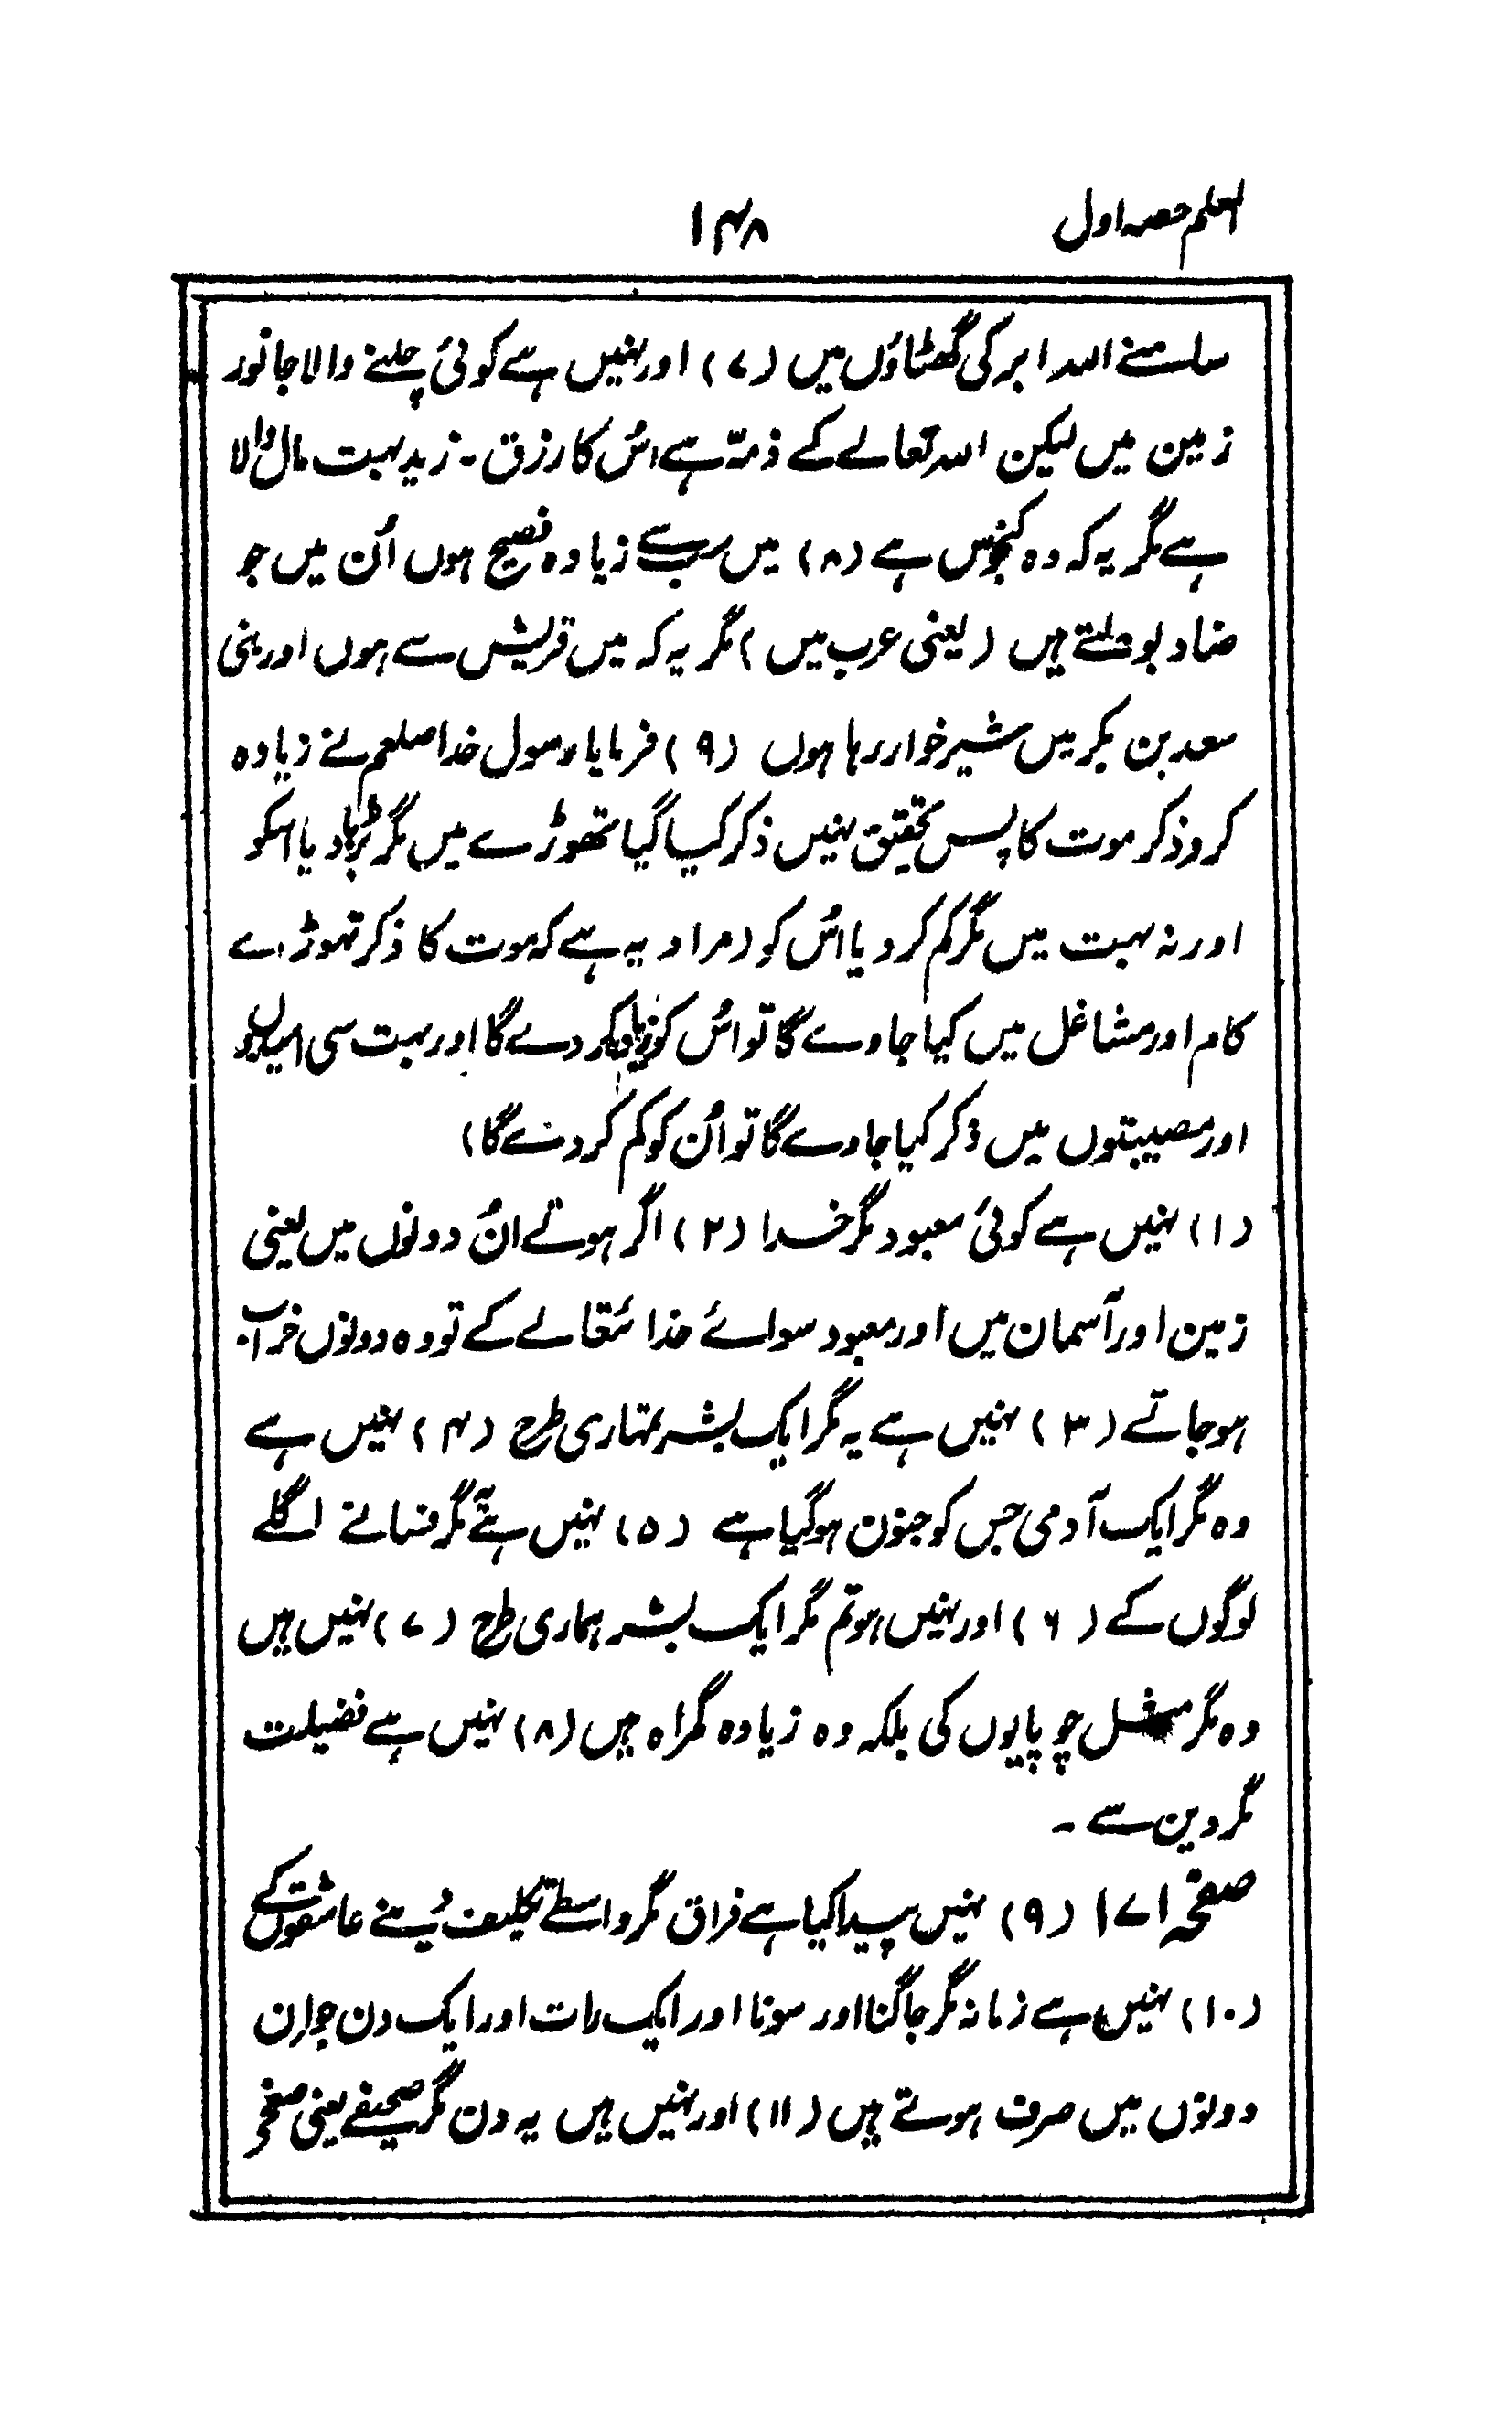 المعلم حصہ اول
۱۴۸
سامنے اللہ ابر کی گھٹاؤں میں (۷) اور نہیں ہے کوئی چلنے والا جانور
زمین میں لیکن اللہ تعالے کے ذمہّ ہے اُس کا رزق ۔ زید بہت مال والا
ہے مگر یہ کہ وہ کنجوس ہے (۸) میں سب سے زیادہ فصیح ہوں اُن میں جو
ضاد بولتے ہیں (یعنی عرب میں) مگر یہ کہ میں قریش سے ہوں اور بنی
سعد بن بکر میں شیر خوار رہا ہوں (۹) فرمایا رسول خدا صلعم نے زیادہ
کرو ذکر موت کا پس تحقیق نہیں ذکر کیا گیا تھوڑے میں مگر بڑہا دیا اسکو
اور نہ بہت میں مگر کم کر دیا اُس کو (مراد یہ ہے کہ موت کا ذکر تھوڑے
کام اور مشاغل میں کیا جاوے گا تو اُس کو زیادہ کر دے گا اور بہت سی امیدوں
اور مصیبتوں میں ذکر کیا جاوے گا تو اُن کو کم کر دے گا)
(۱) نہیں ہے کوئی معبود مگر خدا (۲) اگر ہوتے اُن دونوں میں یعنی
زمین اور آسمان میں اور معبود سوائے خدا ئتعالے کے تو وہ دونوں خراب
ہو جاتے (۳) نہیں ہے یہ مگر ایک بشر تمہاری طرح (۴) نہیں ہے
وہ مگر ایک آدمی جس کو جنون ہو گیا ہے (۵) نہیں ہے مگر فسانے اگلے
لوگوں کے (۶) اور نہیں ہو تم مگر ایک بشر ہماری طرح (۷) نہیں ہیں
وہ مگر مثل چوپایوں کی بلکہ وہ زیادہ گمراہ ہیں (۸) نہیں ہے فضیلت
مگر دین سے ۔
صفحہ ۱۷۱ (۹) نہیں پیدا کیا ہے فراق مگر واسطے تکلیف دینے عاشقوں کے
(۱۰) نہیں ہے زمانہ مگر جاگنا اور سونا اور ایک رات اور ایک دن جو ان
دونوں میں صرف ہوتے ہیں (۱۱) اور نہیں ہیں یہ دن مگر صحیفے یعنی صفحے